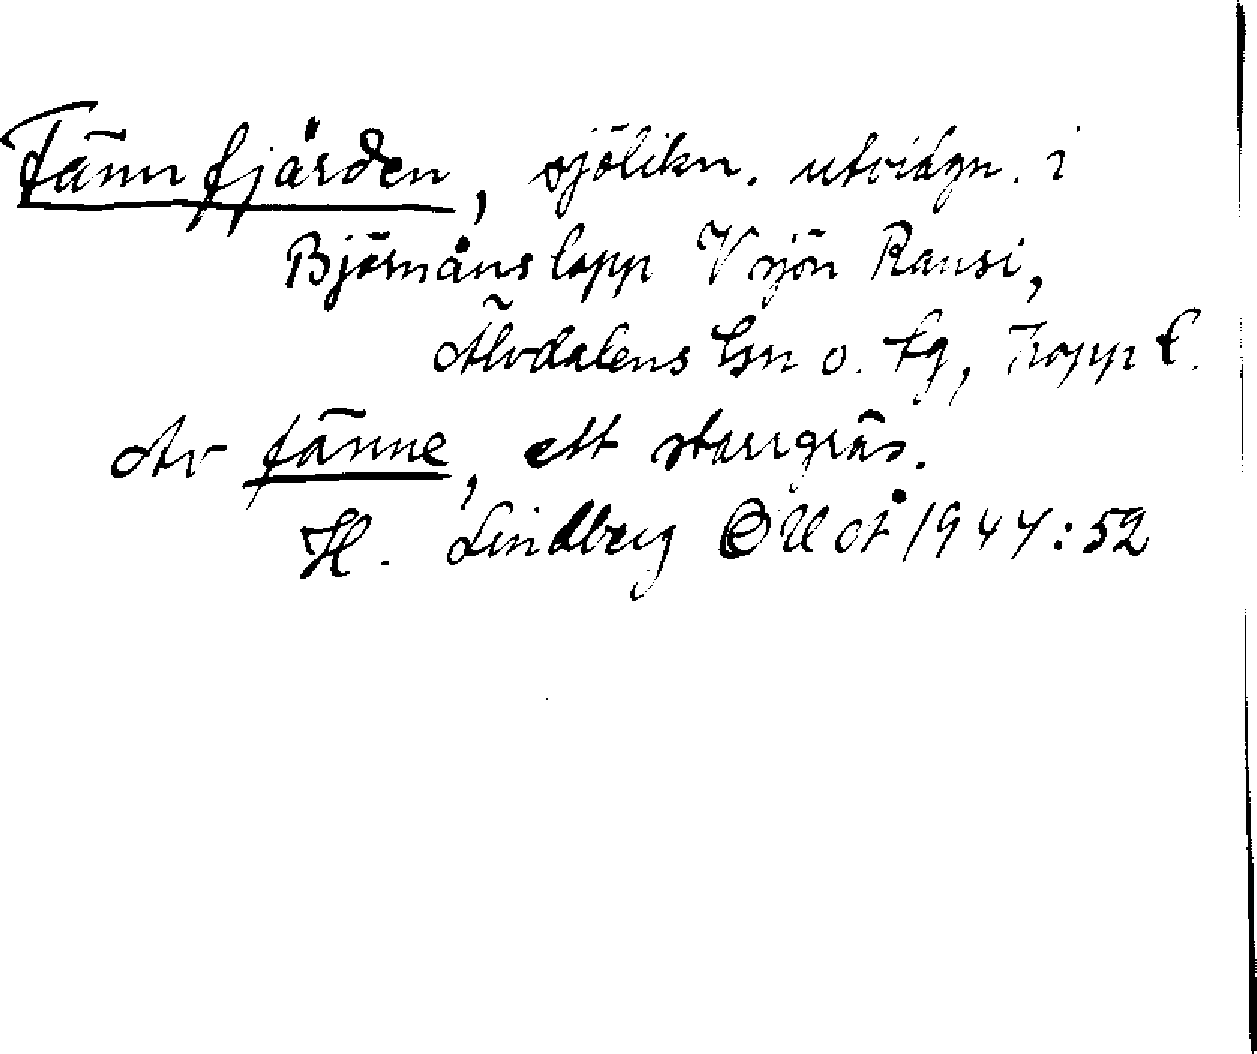 Fännfjärden, sjölikn. utvidgn. i
Björnåns lopp V sjön Ransi,
Älvdalens sn o. tg, Kopp l.
Av fänne, ett starrgräs.
H. Lindberg OUÅ 1944:52